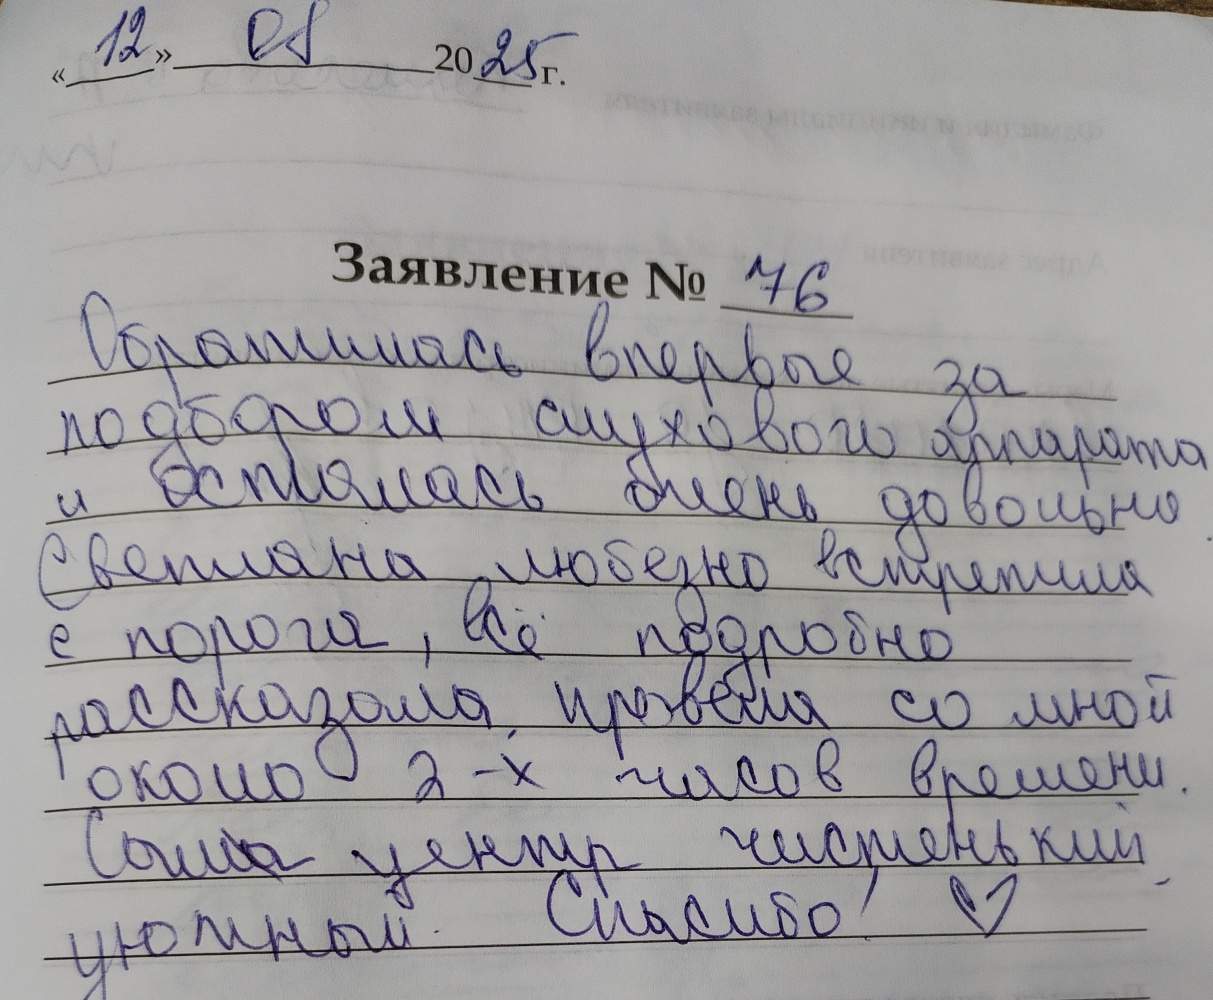 «12» 08 2025 г.
Заявление № 76
Обратилась впервые за
подбором слухового аппарата
и осталась очень довольна
Светлана любезно встретила
с порога, всё подробно
рассказала, провела со мной
около 2-х часов времени.
Сам центр чистенький
уютный. Спасибо! ♡